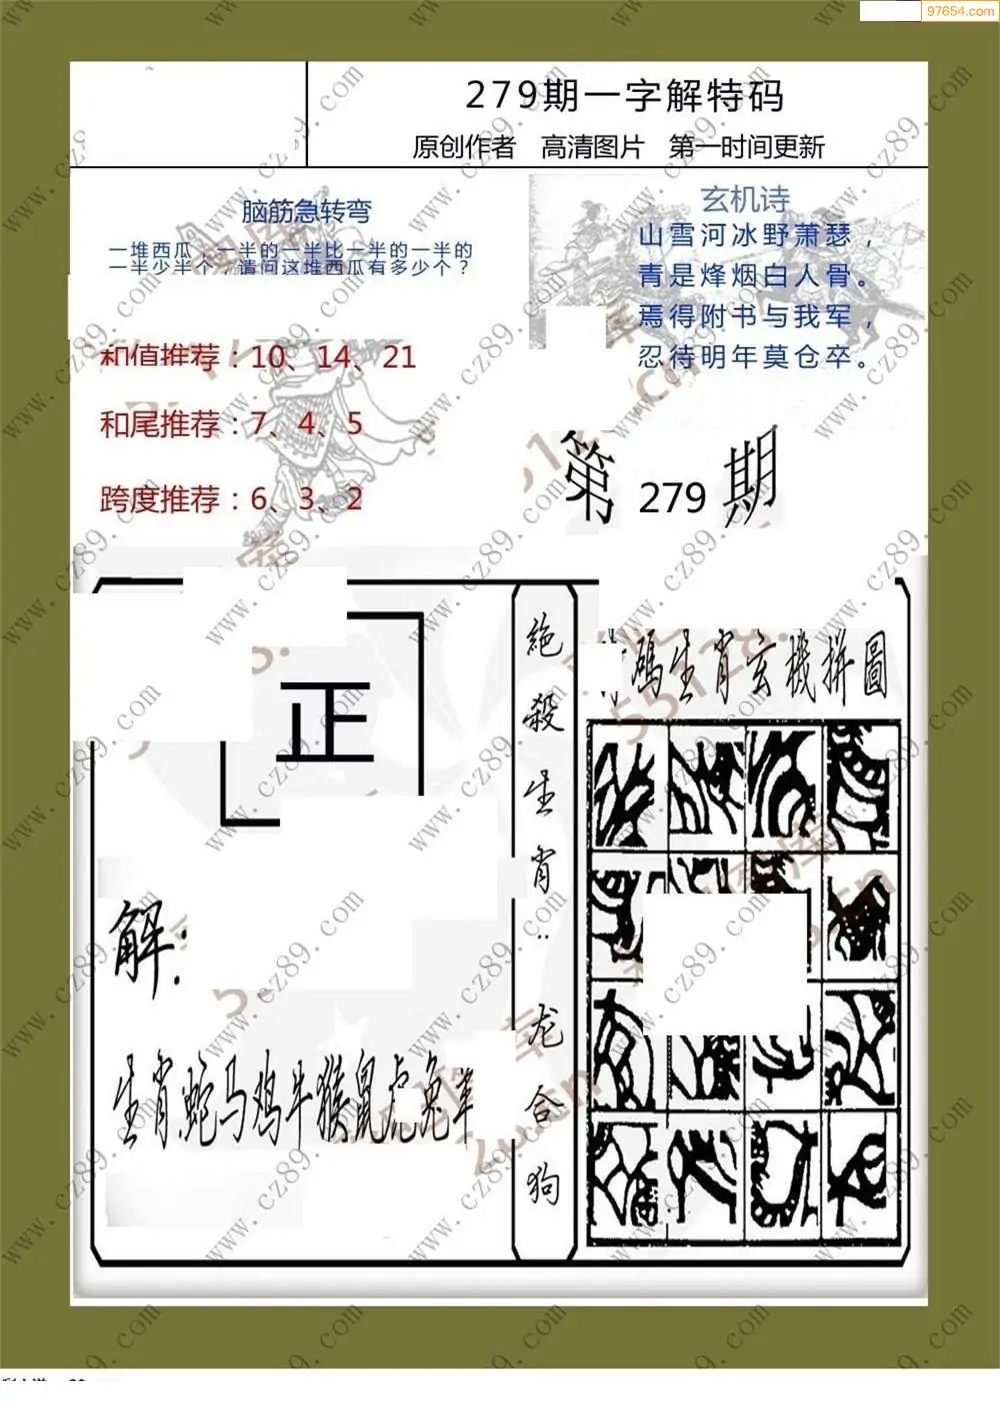 97654.com
279期一字解特码
原创作者 高清图片 第一时间更新
脑筋急转弯
一堆西瓜，一半的一半比一半的一半的
一半少半个，请问这堆西瓜有多少个？
玄机诗
山雪河冰野萧瑟，
青是烽烟白人骨。
焉得附书与我军，
忍待明年莫仓卒。
和值推荐：10、14、21
和尾推荐：7、4、5
跨度推荐：6、3、2
第 279 期
正
解：
生肖:蛇马鸡牛猴鼠虎兔羊
絶殺生肖：龙合狗
碼生肖玄機拼圖
www.cz89.com